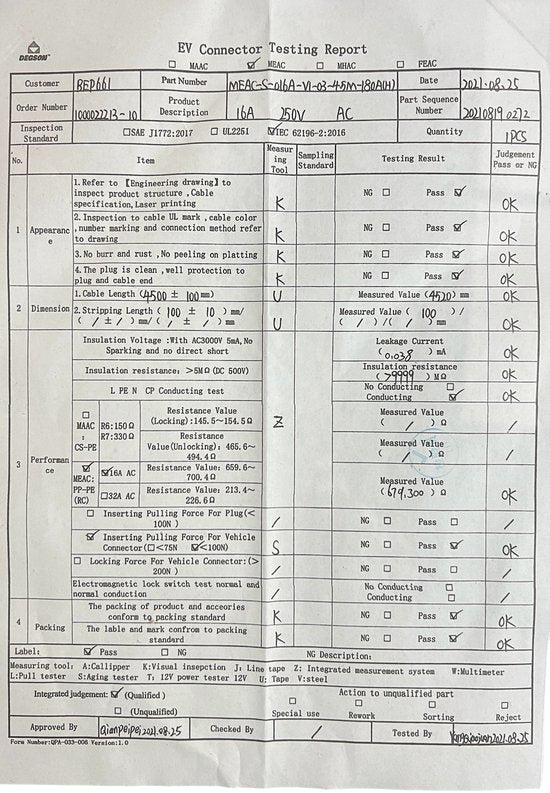 DEGSON
EV Connector Testing Report
☐ MAAC ☑ MEAC ☐ MHAC ☐ FEAC
Customer BEP661 Part Number MEAC-S-016A-V1-03-4.5M-180A(H) Date 2021.08.25
Order Number 1000022213-10 Product Description 16A 250V AC Part Sequence Number 20210819 0272
Inspection Standard ☐SAE J1772:2017 ☐ UL2251 ☑IEC 62196-2:2016 Quantity 1PCS
No. Item Measuring Tool Sampling Standard Testing Result Judgement Pass or NG
1 Appearance
1.Refer to 【Engineering drawing】to inspect product structure ,Cable specification,Laser printing K NG ☐ Pass ☑ OK
2.Inspection to cable UL mark ,cable color ,number marking and connection method refer to drawing K NG ☐ Pass ☑ OK
3.No burr and rust ,No peeling on platting K NG ☐ Pass ☑ OK
4.The plug is clean ,well protection to plug and cable end K NG ☐ Pass ☑ OK
2 Dimension
1.Cable Length (4500 ± 100mm) U Measured Value (4520) mm OK
2.Stripping Length ( 100 ± 10 ) mm/ ( / ± / ) mm/ ( / ± / ) mm U Measured Value ( 100 ) / ( / ) /( / ) mm OK
3 Performance
Insulation Voltage :With AC3000V 5mA,No Sparking and no direct short Leakage Current (0.038) mA OK
Insulation resistance: >5MΩ (DC 500V) Insulation resistance (>9999) MΩ OK
L PE N CP Conducting test No Conducting ☐ Conducting ☑ OK
☐ MAAC : CS-PE R6:150Ω R7:330Ω Resistance Value (Locking):145.5~154.5Ω Z Measured Value ( / ) Ω /
Resistance Value(Unlocking): 465.6~494.4Ω Measured Value ( / ) Ω /
☑ MEAC: PP-PE (RC) ☑16A AC Resistance Value: 659.6~700.4Ω Measured Value (679.300) Ω OK
☐32A AC Resistance Value: 213.4~226.6Ω
☐ Inserting Pulling Force For Plug(< 100N ) / NG ☐ Pass ☐ /
☑ Inserting Pulling Force For Vehicle Connector(☐<75N ☑<100N) S NG ☐ Pass ☑ OK
☐ Locking Force For Vehicle Connector:(> 200N ) / NG ☐ Pass ☐ /
Electromagnetic lock switch test normal and normal conduction / No Conducting ☐ Conducting ☐ /
4 Packing
The packing of product and acceories conform to packing standard K NG ☐ Pass ☑ OK
The lable and mark confrom to packing standard K NG ☐ Pass ☑ OK
Label: ☑ Pass ☐ NG NG Description:
Measuring tool: A:Callipper K:Visual insepction J: Line tape Z: Integrated measurement system W:Multimeter
L:Pull tester S:Aging tester T: 12V power tester 12V U: Tape V:steel
Integrated judgement: ☑ (Qualified ) Action to unqualified part
☐ (Unqualified) ☐ Special use ☐ Rework ☐ Sorting ☐ Reject
Approved By Qianpeipei 2021.08.25 Checked By / Tested By 2021.08.25
Form Number:QPA-033-006 Version:1.0